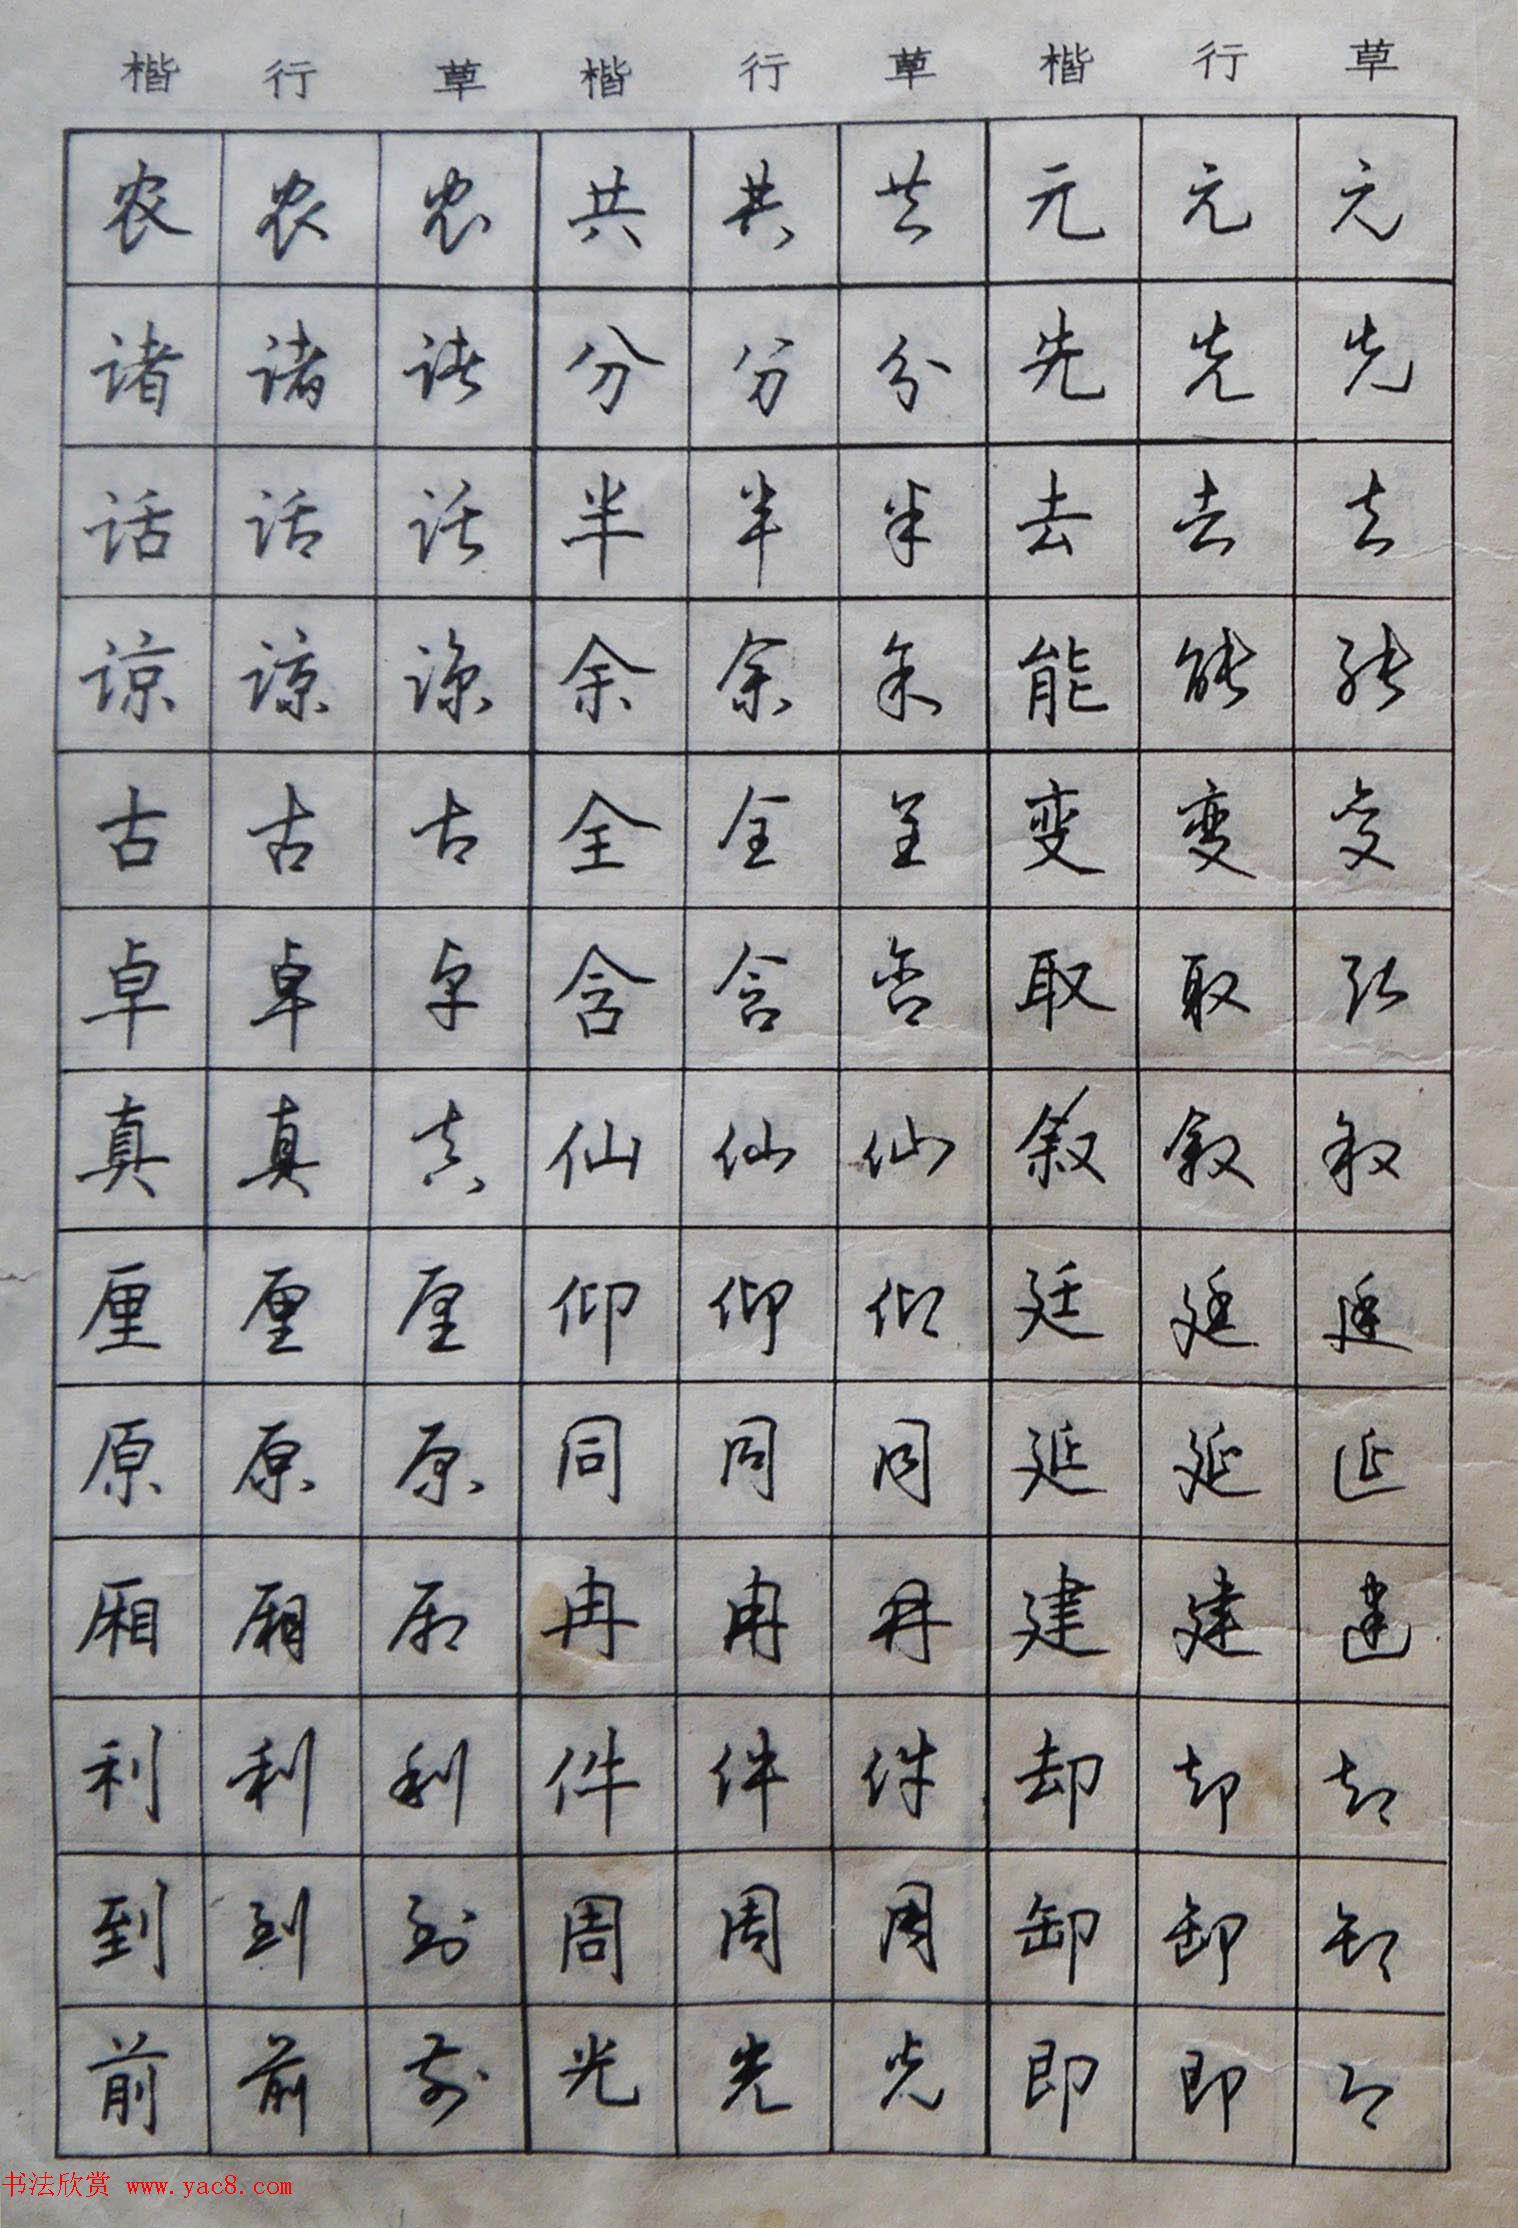 楷 行 草 楷 行 草 楷 行 草
农 农 农 共 共 共 元 元 元
诸 诸 诸 分 分 分 先 先 先
话 话 话 半 半 半 去 去 去
谅 谅 谅 余 余 余 能 能 能
古 古 古 全 全 全 变 变 变
卓 卓 卓 含 含 含 取 取 取
真 真 真 仙 仙 仙 叙 叙 叙
厘 厘 厘 仰 仰 仰 廷 廷 廷
原 原 原 同 同 同 延 延 延
厢 厢 厢 冉 冉 冉 建 建 建
利 利 利 件 件 件 却 却 却
到 到 到 周 周 周 卸 卸 卸
前 前 前 光 光 光 即 即 即
书法欣赏 www.yac8.com